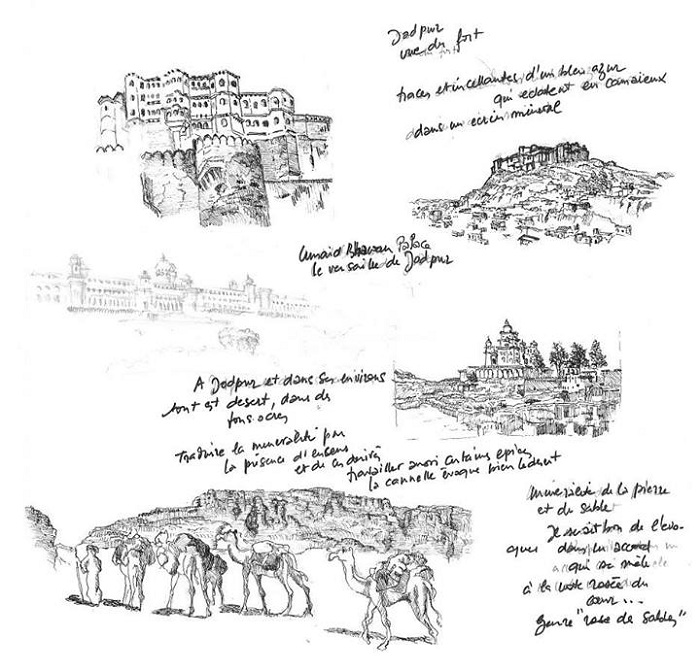 Jodpur
vue du fort
traces etincellantes d'un bleu azur
qui eclatent en camaieux
dans un ecrin minéral
Umaid Bhawan Palace
le versaille de Jodpur
A Jodpur et dans ses environs
tout est desert, dans des
tons ocres
Traduire la mineralité par
la présence d'encens
et de
travailler aussi certaines epices
la cannelle évoque bien le desert
Mineralité de la pierre
et du sable
Il serait bon de l'evo-
quer dans un accord
qui se mêle
à la note rosée du
cœur...
Genre "rose de sables"